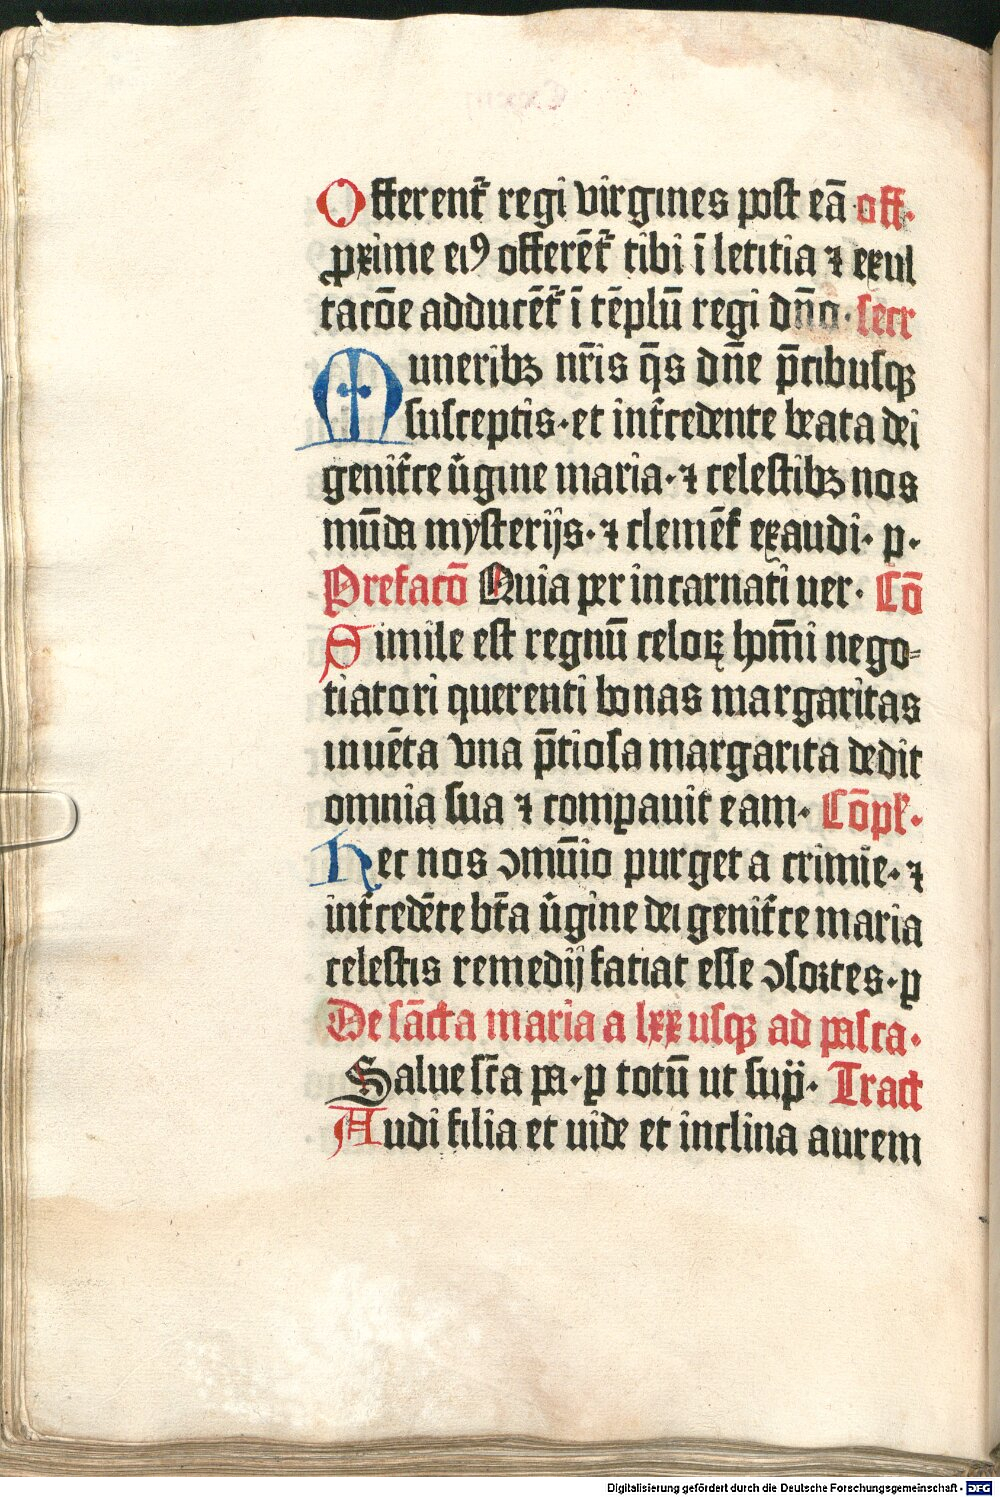 Offerent᷑ regi virgines post eā off.
ꝓxime eiꝰ offerēt᷑ tibi ī letitia ⁊ exul
tacōe adducēt᷑ ī tēplū regi dn̄o. secr
Muneribꝫ nr̄is q̄s dn̄e p̄cibusqꝫ
susceptis. et int᷑cedente beata dei
genit᷑ce v̄gine maria. ⁊ celestibꝫ nos
mūda mysterijs. ⁊ clemēt᷑ exaudi. p.
Prefacō Quia per incarnati uer. Cō
Simile est regnū celoꝝ hoīm̄i nego⸗
tiatori querenti bonas margaritas
inuēta vna p̄tiosa margarita dedit
omnia sua ⁊ comꝑauit eam. Cōpl᷑.
Hec nos ↄmūio purget a crimīe. ⁊
int᷑cedēte bt̄a v̄gine dei genit᷑ce maria
celestis remedij faciat esse ↄsoꝛtes. ꝑ
De sācta maria a lxx usqꝫ ad pasca.
Salue sc̄a pa. ꝑ totū ut sup̄. Tract
Audi filia et uide et inclina aurem
Digitalisierung gefördert durch die Deutsche Forschungsgemeinschaft - DFG